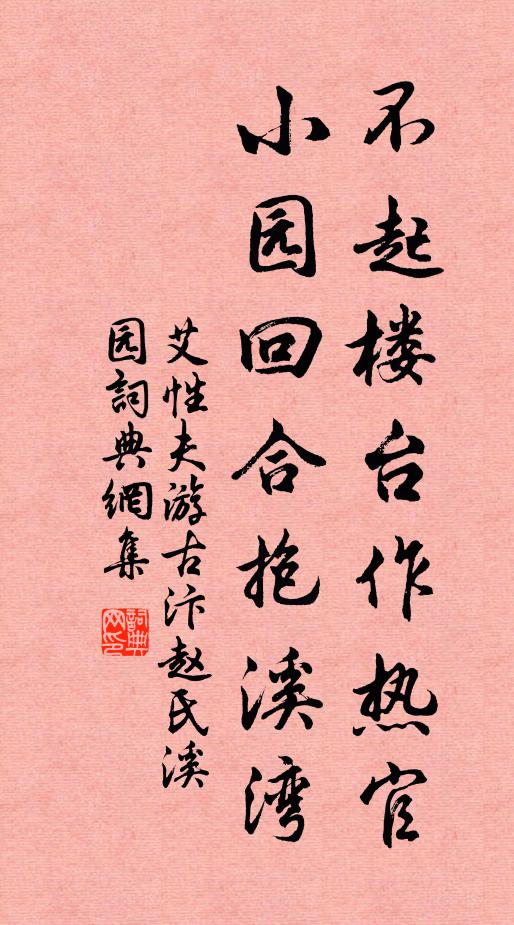 不起楼台作热官
小园回合抱溪湾
艾性夫游古汴赵氏溪
园词典網集
詞典
网印